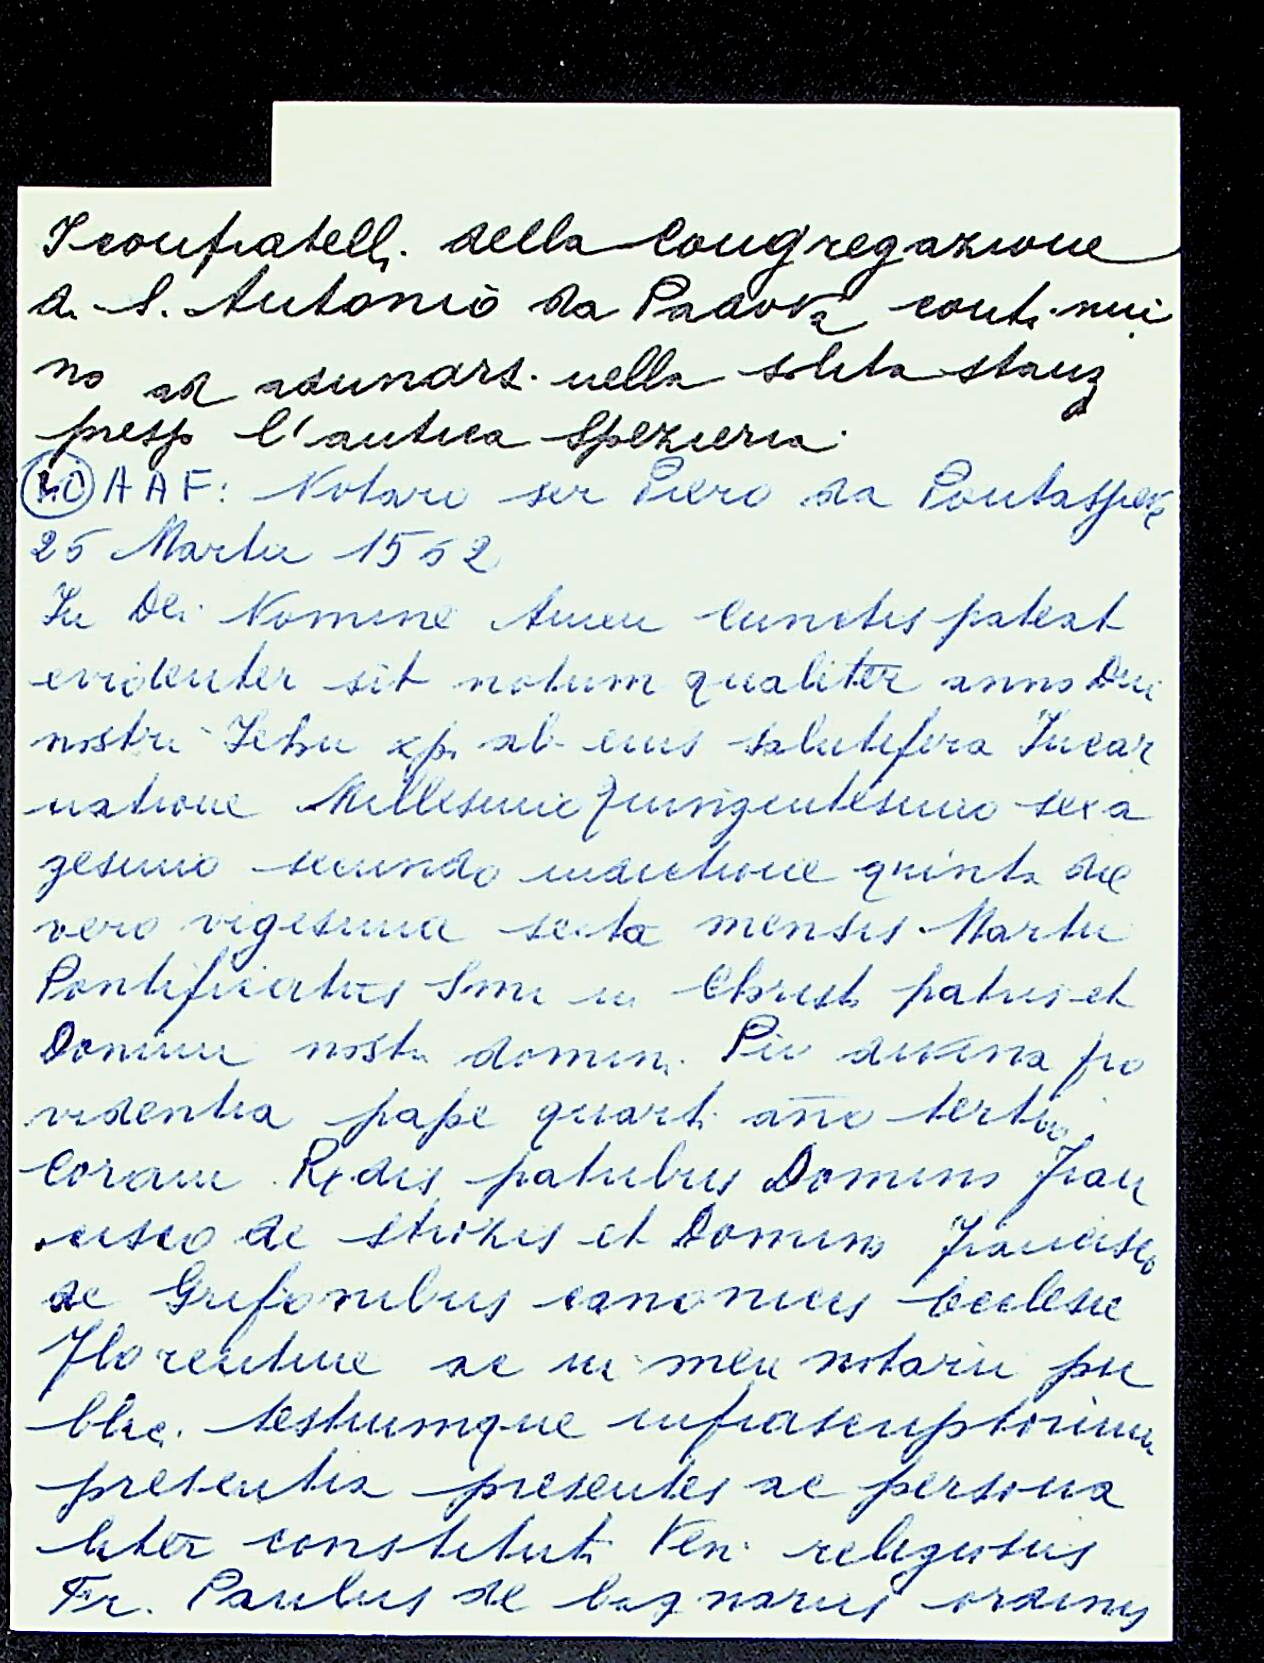 I confratelli della Congregazione
di S. Antonio da Padova conti nui
no ad adunarsi nella solita stanz
presso l'antica Spezieria.
AAF: Notaro ser Piero da
26 Martii 1562
In Dei Nomine Amen Cunctis pateat
evidenter sit notum qualiter anno Dni
nostri Iehsu xpi ab eius salutifera Incar
natione Millesimo Quingentesimo sexa
gesimo secundo indictione quinta die
vero vigesima sexta mensis Martii
Pontificatus Smi in Christi patris et
Domini nostri domini Pii divina pro
videntia pape quarti año tertio,
Coram R.dis patribus Domino Fran
cisco de Strozis et Domino Francisco
de Grifonibus canonicis Ecclesie
Florentine ac in mei notarii pu
blici testiumque infrascriptorum
presentia presentes ac persona
liter constituti Ven. religiosus
Fr. Paulus de ordinis